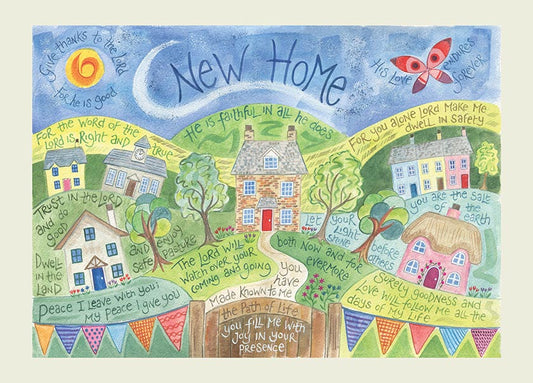 Give thanks to the Lord
for he is good
New Home
His love endures
forever
He is faithful in all he does
For the word of the
Lord is right and true
For you alone Lord make me
dwell in safety
Trust in the Lord
and do
good
Dwell
in the
land
and enjoy
safe
pasture
The Lord will
watch over your
coming and going
both now and for
evermore
Let
your
light
shine
before
others
you are the salt
of
earth
Peace I leave with you
my peace I give you
you
have
made known to me
the path of life
you fill me with
joy in your
presence
Surely goodness and
love will follow me all the
days of my life